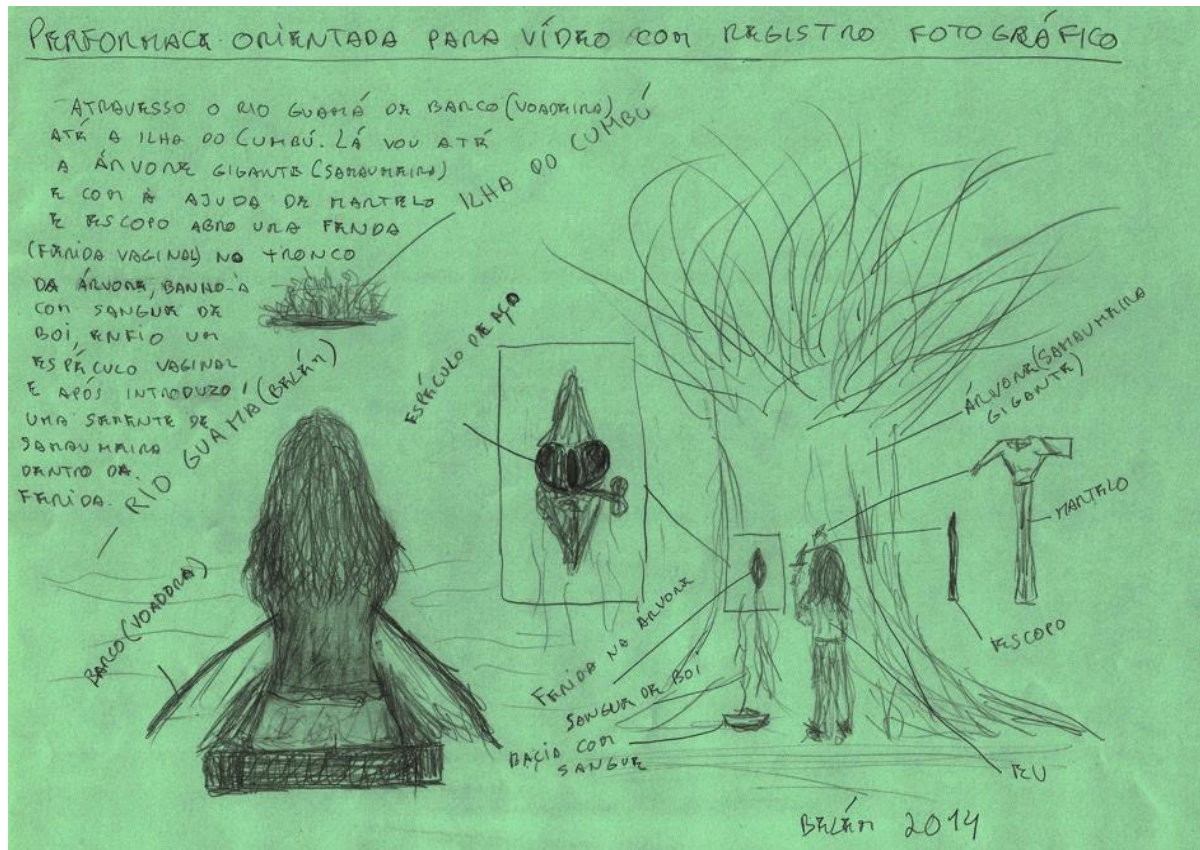 PERFORMACE ORIENTADA PARA VÍDEO COM REGISTRO FOTOGRÁFICO
ATRAVESSO O RIO GUAMÁ DE BARCO (VOADEIRA)
ATÉ A ILHA DO CUMBÚ. LÁ VOU ATÉ
A ÁRVORE GIGANTE (SAMAUMEIRA)
E COM A AJUDA DE MARTELO
E ESCOPO ABRO UMA FENDA
(FERIDA VAGINAL) NO TRONCO
DA ÁRVORE, BANHO-À
COM SANGUE DE
BOI, ENFIO UM
ESPÉCULO VAGINAL
E APÓS INTRODUZO
UMA SEMENTE DE
SAMAUMEIRA
DENTRO DA
FERIDA.
ILHA DO CUMBÚ
RIO GUAMA (BELÉM)
BARCO (VOADORA)
ESPÉCULO DE AÇO
ÁRVORE (SAMAUMEIRA
GIGANTE)
MARTELO
ESCOPO
FERIDA NA ÁRVORE
SANGUE DE BOI
BACIA COM
SANGUE
EU
BELÉM 2014